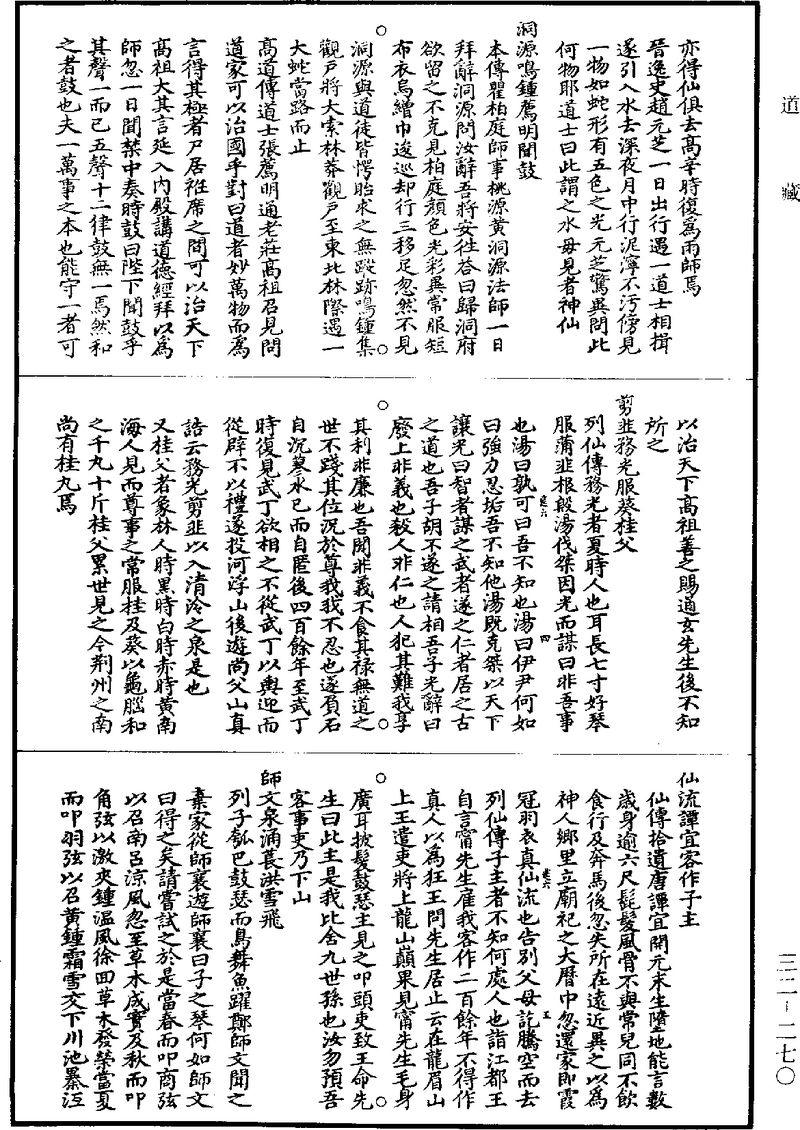 道藏
亦得仙俱去高辛時復爲雨師焉
晉逸史趙元芝一日出行遇一道士相揖
遂引入水去深夜月中行泥濘不污傍見
一物如蛇形有五色之光元芝驚異問此
何物耶道士曰此謂之水母見者神仙
洞源鳴鍾薦明聞鼓
本傳瞿柏庭師事桃源黃洞源法師一日
拜辭洞源問汝辭吾將安徃荅曰歸洞府
欲留之不克見柏庭顏色光彩異常服短
布衣烏繒巾逡巡却行三移足忽然不見
洞源與道徒皆愕眙求之無蹤跡鳴鍾集
觀戶將大索林莽觀戶至東北林際遇一
大蛇當路而止
高道傳道士張薦明通老莊高祖召見問
道家可以治國乎對曰道者妙萬物而爲
言得其極者尸居袵席之間可以治天下
高祖大其言延入內殿講道德經拜以爲
師忽一日聞禁中奏時鼓曰陛下聞鼓乎
其聲一而已五聲十二律鼓無一焉然和
之者鼓也夫一萬事之本也能守一者可
以治天下高祖善之賜通玄先生後不知
所之
剪韭務光服葵桂父
列仙傳務光者夏時人也耳長七寸好琴
服蒲韭根殷湯伐桀因光而謀曰非吾事
也湯曰孰可曰吾不知也湯曰伊尹何如
卷六
四
曰強力忍垢吾不知他湯既克桀以天下
讓光曰智者謀之武者遂之仁者居之古
之道也吾子胡不遂之請相吾子光辭曰
廢上非義也殺人非仁也人犯其難我享
其利非廉也吾聞非義不食其祿無道之
世不踐其位況於尊我我不忍也遂負石
自沉蓼水已而自匿後四百餘年至武丁
時復見武丁欲相之不從武丁以輿迎而
從辟不以禮遂投河浮山後遊尚父山真
誥云務光剪韭以入清泠之泉是也
又桂父者象林人時黑時白時赤時黃南
海人見而尊事之常服桂及葵以龜腦和
之千丸十斤桂父累世見之今荊州之南
尚有桂丸焉
仙流譚宜客作子主
仙傳拾遺唐譚宜開元末生墮地能言數
歲身逾六尺髭髮風骨不與常兒同不飲
食行及奔馬後忽失所在遠近異之以爲
神人鄉里立廟祀之大曆中忽還家即霞
冠羽衣真仙流也告別父母訖騰空而去
卷六
五
列仙傳子主者不知何處人也詣江都王
自言甯先生雇我客作二百餘年不得作
真人以爲狂王問先生居止云在龍眉山
上王遣吏將上龍山巔果見甯先生毛身
廣耳披髮鼓瑟主見之叩頭吏致王命先
生曰此主是我比舍九世孫也汝勿預吾
客事吏乃下山
師文泉涌萇洪雪飛
列子瓠巴鼓瑟而鳥舞魚躍鄭師文聞之
棄家從師襄遊師襄曰子之琴何如師文
曰得之矣請嘗試之於是當春而叩商弦
以召南呂涼風忽至草木成實及秋而叩
角弦以激夾鍾溫風徐回草木發榮當夏
而叩羽弦以召黃鍾霜雪交下川池暴沍
三二－二七〇